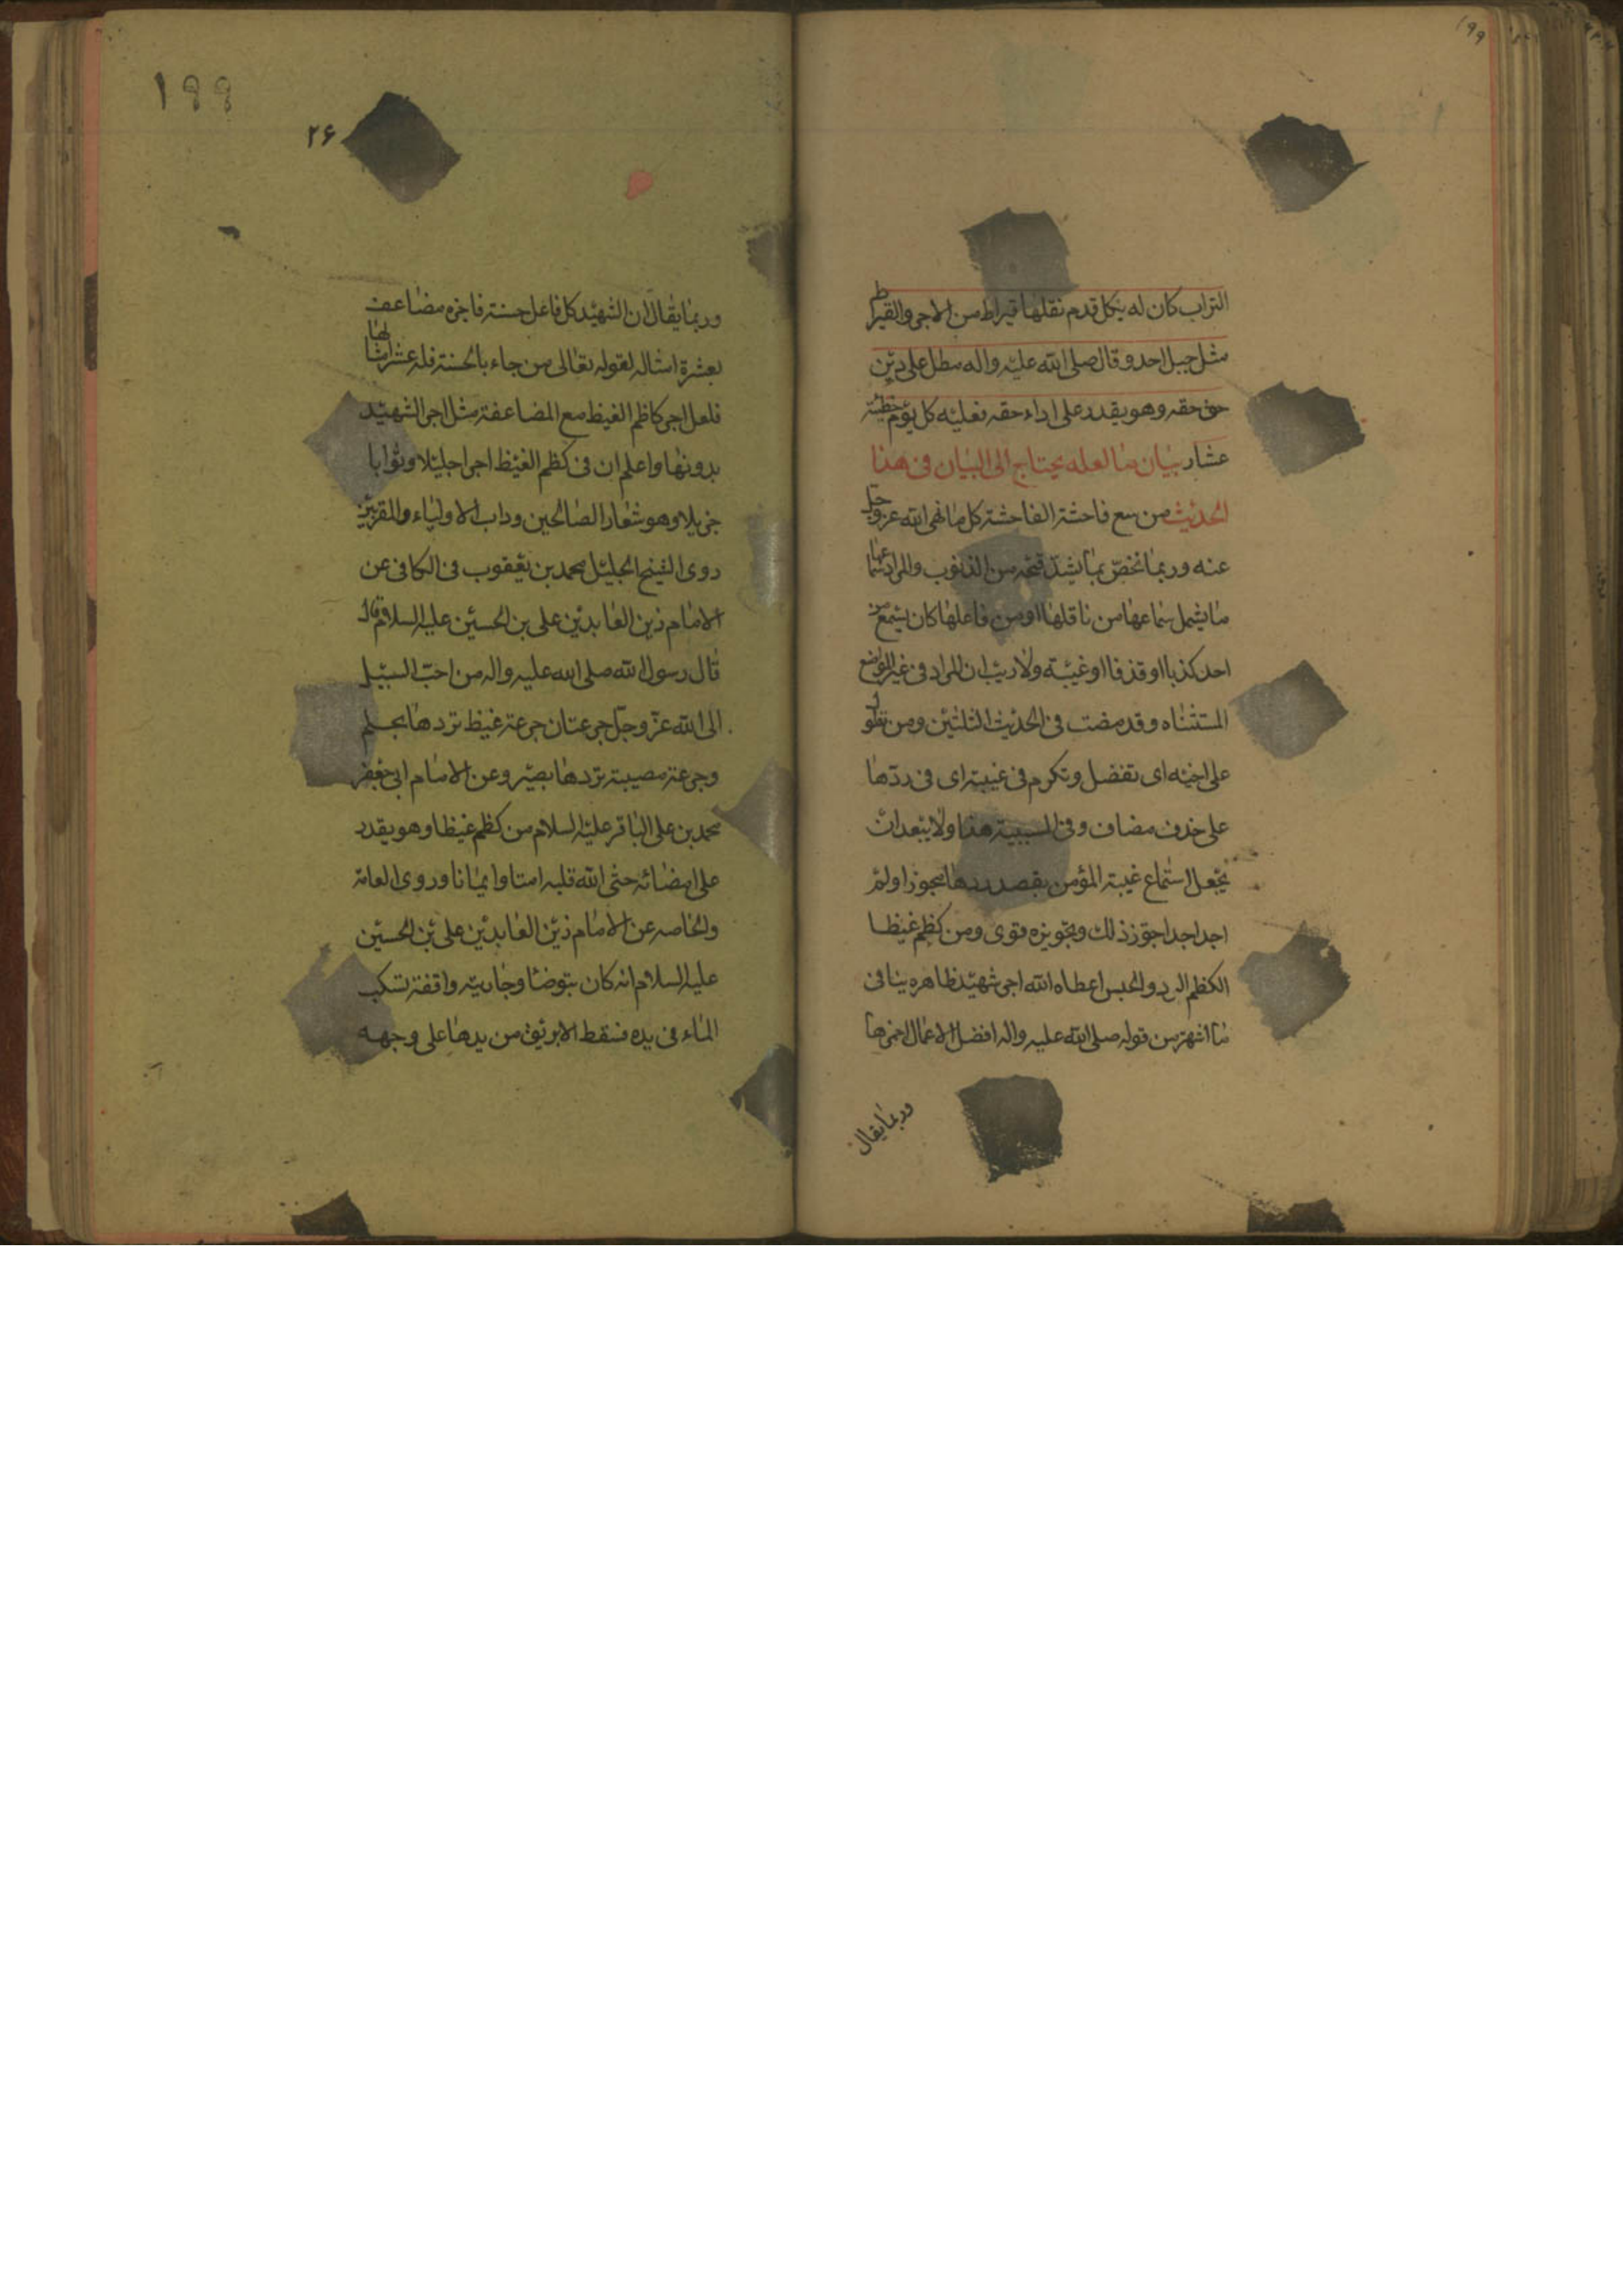 ١٩٩
التراب كان له بكل قدم نقلها قيراط من الاجر والقيراط
مثل جبل احد وقال صلى الله عليه واله مطل على دين
حق حقه وهو يقدر على اداء حقه فعليه كل يوم خطيئة
عشار بيان ما لعله يحتاج الى البيان فى هذا
الحديث من سمع فاحشة الفاحشة كل ما نهى الله عز وجل
عنه وربما تخص بما يشتد قبحه من الذنوب والمراد بسماعها
ما يشمل سماعها من ناقلها او من فاعلها كان يسمع من
احد كذبا او قذفا او غيبته ولا ريب ان المراد فى غير المواضع
المستثناه وقد مضت فى الحديث الثلثين ومن تطول
على اخيه اى تفضل وتكرم فى غيبته اى فى ردها
على حذف مضاف وفى للسببية هذا ولا يبعد ان
يجعل استماع غيبة المؤمن بقصد ردها مجوزا ولم
اجد احدا جوز ذلك وتجويزه قوى ومن كظم غيظا
الكظم الرد والحبس اعطاه الله اجر شهيد ظاهره ينافى
ما اشتهر من قوله صلى الله عليه واله افضل الاعمال احمزها
وربما يقال
١٩٩
٢۶
وربما يقال ان الشهيد كل فاعل حسنة فاجره مضاعف
بعشرة امثاله لقوله تعالى من جاء بالحسنة فله عشر امثالها
فلعل اجر كاظم الغيظ مع المضاعفة مثل اجر الشهيد
بدونها واعلم ان فى كظم الغيظ اجرا جليلا وثوابا
جزيلا وهو شعار الصالحين وداب الاولياء والمقربين
روى الشيخ الجليل محمد بن يعقوب فى الكافى عن
الامام زين العابدين على بن الحسين عليه السلام قال
قال رسول الله صلى الله عليه واله من احب السبيل
الى الله عز وجل جرعتان جرعة غيظ تردها بحلم
وجرعة مصيبة تردها بصبر وعن الامام ابى جعفر
محمد بن على الباقر عليه السلام من كظم غيظا وهو يقدر
على امضائه حشى الله قلبه امنا وايمانا وروى العامة
والخاصه عن الامام زين العابدين على بن الحسين
عليه السلام انه كان يتوضا وجاريته واقفة تسكب
الماء فى يده فسقط الابريق من يدها على وجهه